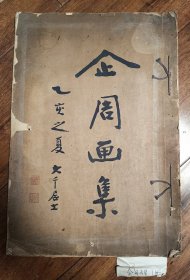 企周画集
乙亥之夏
大千居士